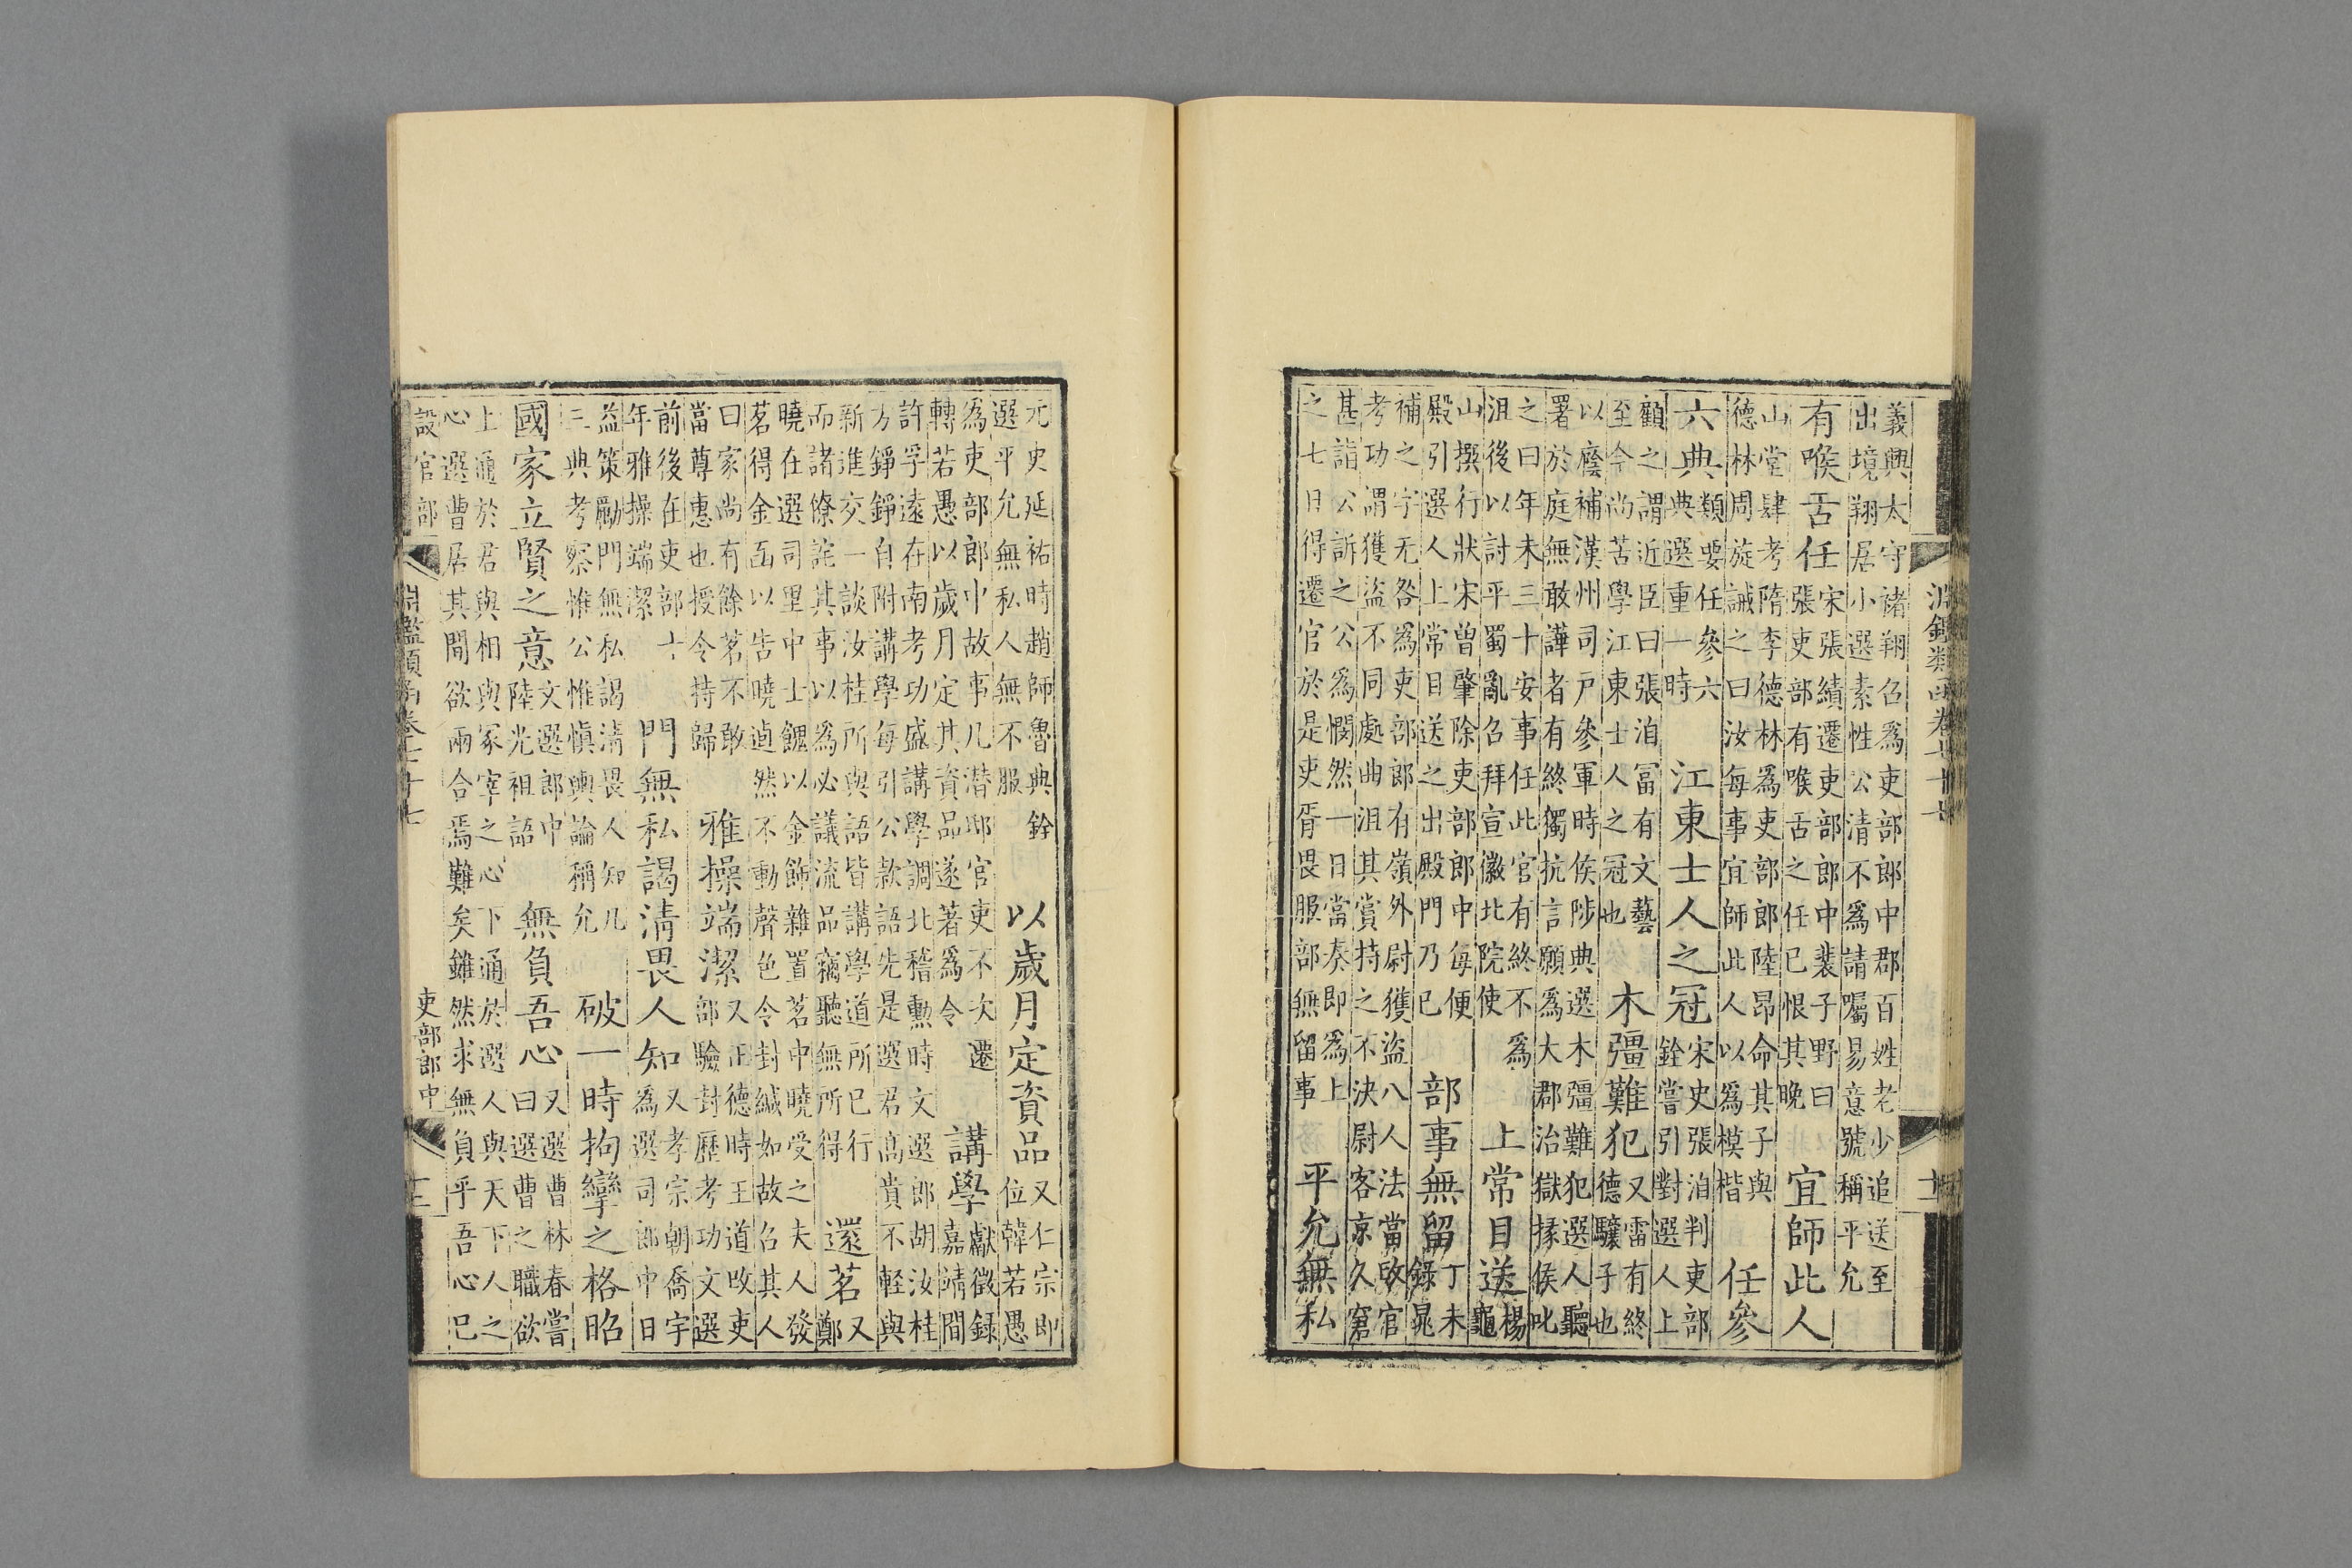 淵鑑類函卷七十七
義興太守諸翔召爲吏部郎中郡百姓老少追送至
出境翔居小選素性公清不爲請囑易意號稱平允
有喉舌任
宋張績遷吏部郎中裴子野曰
張吏部有喉舌之任已恨其晚
宜師此人
山堂肆考隋李德林爲吏部郎陸昂命其子與
德林周旋誡之曰汝每事宜師此人以爲模楷
任參
六典
類要任參六
典典選重一時
江東士人之冠
宋史張洎判吏部
銓嘗引對選人上
顧之謂近臣曰張洎冨有文藝
至今尚苦學江東士人之冠也
木彊難犯
又雷有終
德驤子也
以廕補漢州司戸參軍時侯陟典選木彊難犯選人聽
署於庭無敢譁者有終獨抗言願爲大郡治獄掾侯叱
之曰年未三十安事任此官有終不爲
沮後以討平蜀亂召拜宣徽北院使
上常目送
楊
龜
山撰行狀宋曾肇除吏部郎中每便
殿引選人上常目送之出殿門乃已
部事無留
丁未
錄晁
補之字无咎爲吏部郎有嶺外尉獲盜八人法當改官
考功謂獲盜不同處曲沮其賞持之不決尉客京久窘
甚詣公訴之公爲憫然一日當奏即爲上
之七日得遷官於是吏胥畏服部無留事
平允無私
元史延祐時趙師魯典銓
選平允無私人無不服
以歲月定資品
又仁宗即
位韓若愚
爲吏部郎中故事凡潛邸官吏不次遷
轉若愚以歲月定其資品遂著爲令
講學
獻徵錄
嘉靖間
許孚遠在南考功盛講學調北稽勳時文選郎胡汝桂
方錚錚自附講學每引公款語先是選君高貴不輕與
新進交一談汝桂所與語皆講學道所已行
而諸僚詫其事以爲必議流品竊聽無所得
還茗
又
鄭
曉在選司里中士餽以金餙雜置茗中曉受之夫人發
茗得金函以告曉逌然不動聲色令封緘如故召其人
曰家尚有餘茗不敢
當尊惠也授令持歸
雅操端潔
又正德時王道改吏
部驗封歷考功文選
前後在吏部十
年雅操端潔
門無私謁清畏人知
又孝宗朝喬宇
爲選司郎中日
益策勵門無私謁清畏人知凡
三典考察惟公惟愼輿論稱允
破一時拘攣之格昭
國家立賢之意
文選郎中
陸光祖語
無負吾心
又選曹林春嘗
曰選曹之職欲
上通於君與相與冢宰之心下通於選人與天下人之
心選曹居其間欲兩合焉難矣雖然求無負乎吾心已
設官部
淵鑑類函卷七十七
吏部郎中